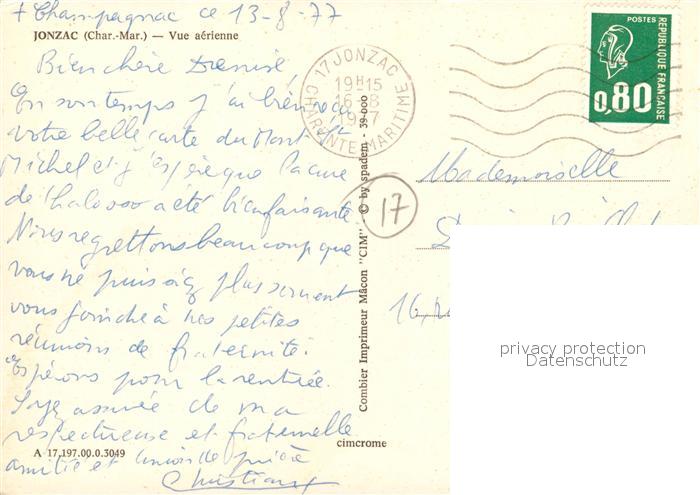 + Champagnac ce 13-8-77
JONZAC (Char.-Mar.) — Vue aérienne
Bien chère Denise,
En son temps j'ai bien reçu
votre belle carte du Mont St
Michel et j'espère que la cure
de thalasso a été bienfaisante
Nous regrettons beaucoup que
vous ne puissiez plus souvent
vous joindre à nos petites
réunions de fraternité.
Espérons pour la rentrée.
Soyez assurée de ma
respectueuse et fraternelle
amitié et union de prière
Christiane
A 17.197.00.0.3049
cimcrome
Combier Imprimeur Mâcon "CIM" - © by spadem - 39-000
17 JONZAC
19H15
16-8
1977
CHARENTE MARITIME
17
POSTES
REPUBLIQUE FRANÇAISE
0,80
Mademoiselle
16,
privacy protection
Datenschutz